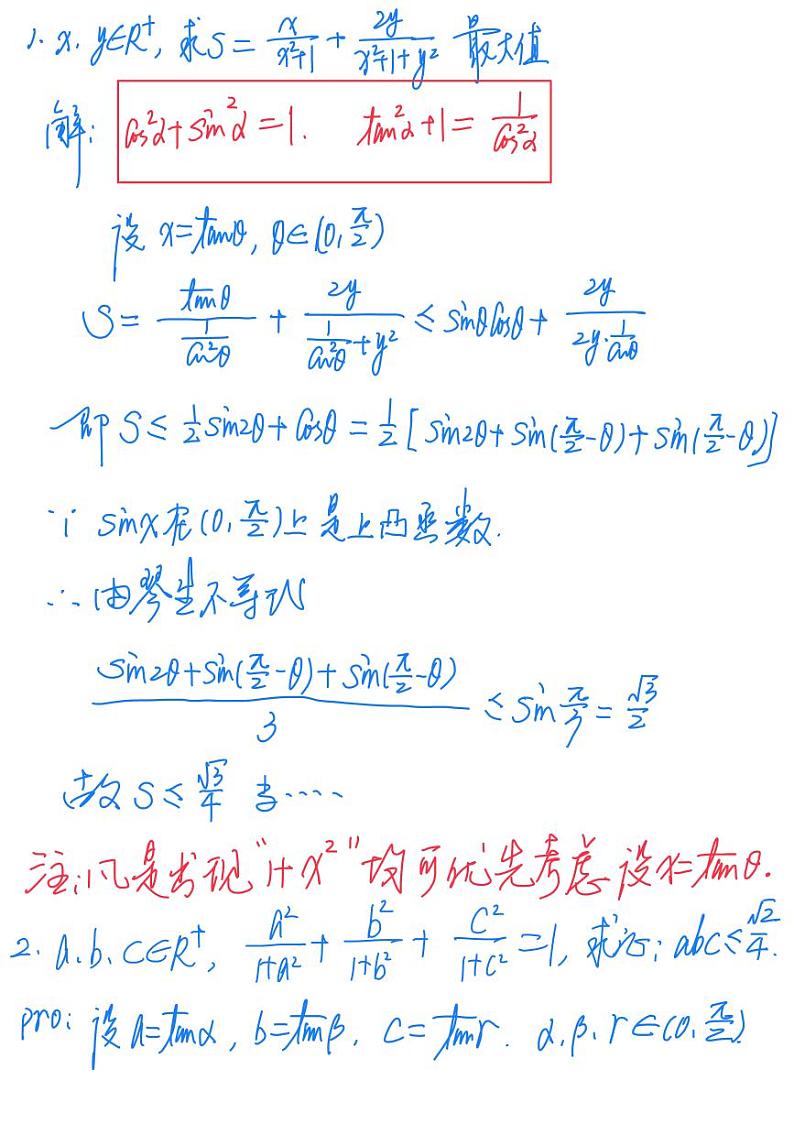 1. x. y∈R⁺, 求S = x/(x²+1) + 2y/(x²+1+y²) 最大值
解: cos²α+sin²α=1. tan²α+1= 1/cos²α
设 x=tanθ, θ∈(0, π/2)
S = tanθ/(1/cos²θ) + 2y/(1/cos²θ+y²) ≤ sinθcosθ+ 2y/(2y·1/cosθ)
即 S ≤ ½sin2θ+cosθ = ½[sin2θ+sin(π/2-θ)+sin(π/2-θ)]
∵ sinx在(0, π/2)上是上凸函数.
∴由琴生不等式
(sin2θ+sin(π/2-θ)+sin(π/2-θ))/3 ≤ sin π/3 = √3/2
故 S ≤ √3/4 当····
注:凡是出现"1+x²"均可优先考虑设x=tanθ.
2. a.b.c∈R⁺, a²/(1+a²) + b²/(1+b²) + c²/(1+c²) =1, 求证: abc≤√2/4.
pro: 设a=tanα, b=tanβ, c=tanr. α.β.r∈(0, π/2).